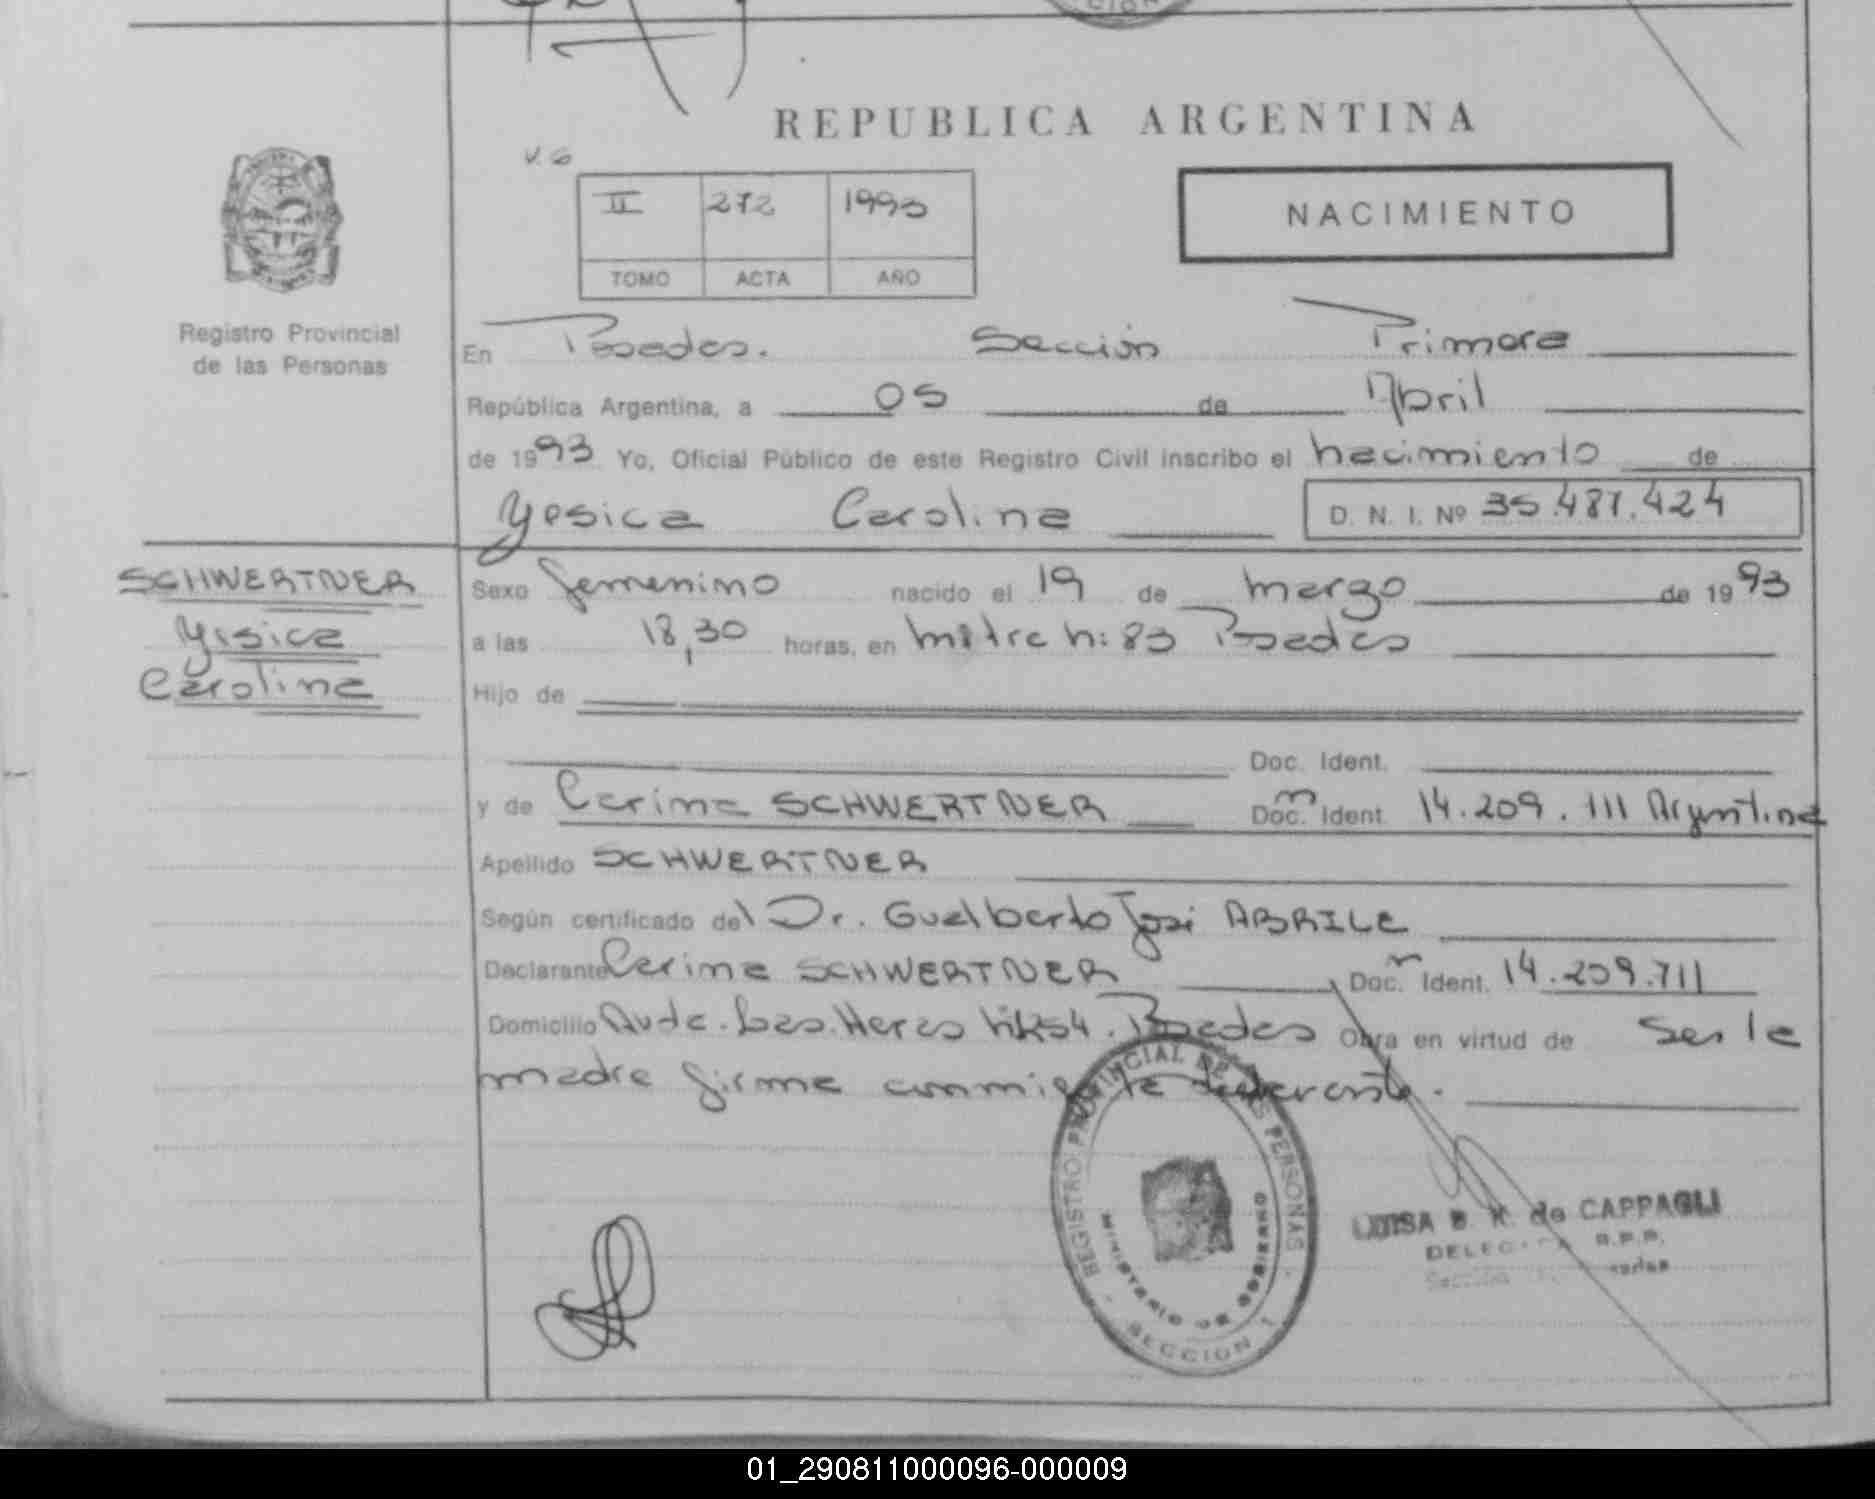 REPUBLICA ARGENTINA
V. G
II 272 1993
TOMO ACTA AÑO
NACIMIENTO
Registro Provincial
de las Personas
En Posadas. Sección Primera
República Argentina, a 05 de Abril
de 1993 Yo, Oficial Público de este Registro Civil inscribo el nacimiento de
Yesica Carolina D. N. I. Nº 35.487.424
SCHWERTNER
Yesica
Carolina
Sexo femenino nacido el 19 de marzo de 1993
a las 18,30 horas, en mitre n: 83 Posadas
Hijo de
Doc. Ident.
y de Carina SCHWERTNER Doc. Ident. 14.209.111 Argentina
Apellido SCHWERTNER
Según certificado del Dr. Gualberto José ABRILE
Declarante Carina SCHWERTNER Doc. Ident. 14.209.711
Domicilio Avda. Las Heras Posadas Obra en virtud de Ser la
madre firma conmigo la declarante.
REGISTRO PROVINCIAL DE LAS PERSONAS
MINISTERIO DE GOBIERNO
SECCION 1
LUISA B. K. de CAPPAGLI
DELEGADA R.P.P.
Sección
01_290811000096-000009